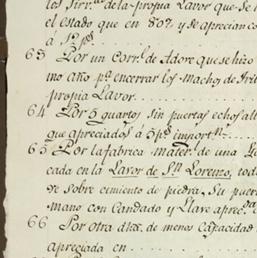 los Sirv.tes de la propia Lavor que se h
el estado que en 807 y se aprecian co
á 5 p.s
63 Por un Corr.l de Adove que se hizo
mo año p.a encerrar los machos de Tri
propia Lavor
64 Por 5 quartos sin puertas echos al
que apreciados á 5 p.s import.n
65 Por la fabrica mater.l de una
cada en la Lavor de S.n Lorenzo, tod
de sobre cimiento de piedra, su puer
mano con Candado y Llave aprec.da
66 Por otra d.ha de menos Capacidad
apreciada en